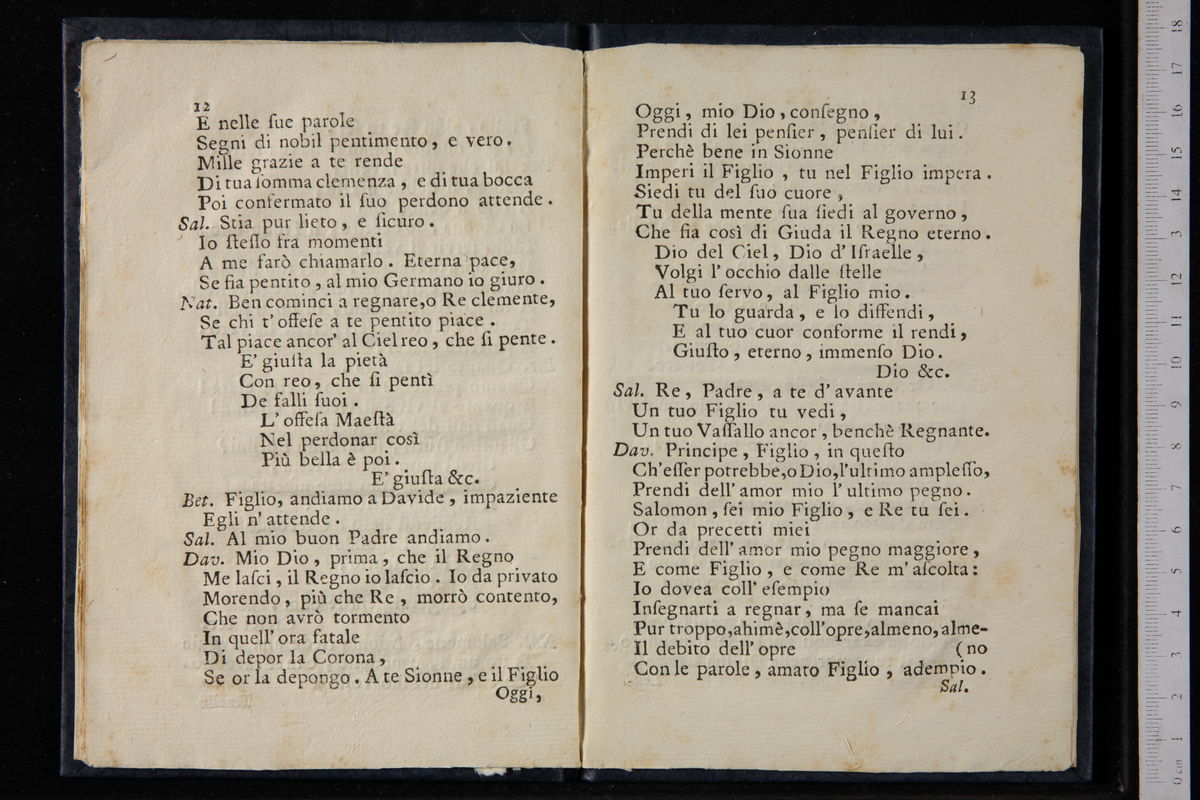 12
E nelle ſue parole
Segni di nobil pentimento, e vero.
Mille grazie a te rende
Di tua ſomma clemenza, e di tua bocca
Poi confermato il ſuo perdono attende.
Sal. Stia pur lieto, e ſicuro.
Io ſteſſo fra momenti
A me farò chiamarlo. Eterna pace,
Se fia pentito, al mio Germano io giuro.
Nat. Ben cominci a regnare, o Re clemente,
Se chi t'offeſe a te pentito piace.
Tal piace ancor' al Ciel reo, che ſi pente.
E' giuſta la pietà
Con reo, che ſi pentì
De falli ſuoi.
L'offeſa Maeſtà
Nel perdonar così
Più bella è poi.
E' giuſta &c.
Bet. Figlio, andiamo a Davide, impaziente
Egli n'attende.
Sal. Al mio buon Padre andiamo.
Dav. Mio Dio, prima, che il Regno
Me laſci, il Regno io laſcio. Io da privato
Morendo, più che Re, morrò contento,
Che non avrò tormento
In quell'ora fatale
Di depor la Corona,
Se or la depongo. A te Sionne, e il Figlio
Oggi,
13
Oggi, mio Dio, conſegno,
Prendi di lei penſier, penſier di lui.
Perchè bene in Sionne
Imperi il Figlio, tu nel Figlio impera.
Siedi tu del ſuo cuore,
Tu della mente ſua ſiedi al governo,
Che fia così di Giuda il Regno eterno.
Dio del Ciel, Dio d'Iſraelle,
Volgi l'occhio dalle ſtelle
Al tuo ſervo, al Figlio mio.
Tu lo guarda, e lo diffendi,
E al tuo cuor conforme il rendi,
Giuſto, eterno, immenſo Dio.
Dio &c.
Sal. Re, Padre, a te d'avante
Un tuo Figlio tu vedi,
Un tuo Vaſſallo ancor, benchè Regnante.
Dav. Principe, Figlio, in queſto
Ch'eſſer potrebbe, o Dio, l'ultimo ampleſſo,
Prendi dell'amor mio l'ultimo pegno.
Salomon, ſei mio Figlio, e Re tu ſei.
Or da precetti miei
Prendi dell'amor mio pegno maggiore,
E come Figlio, e come Re m'aſcolta:
Io dovea coll'eſempio
Inſegnarti a regnar, ma ſe mancai
Pur troppo, ahimè, coll'opre, almeno, alme-
Il debito dell'opre (no
Con le parole, amato Figlio, adempio.
Sal.
0 cm 1 2 3 4 5 6 7 8 9 10 11 12 13 14 15 16 17 18